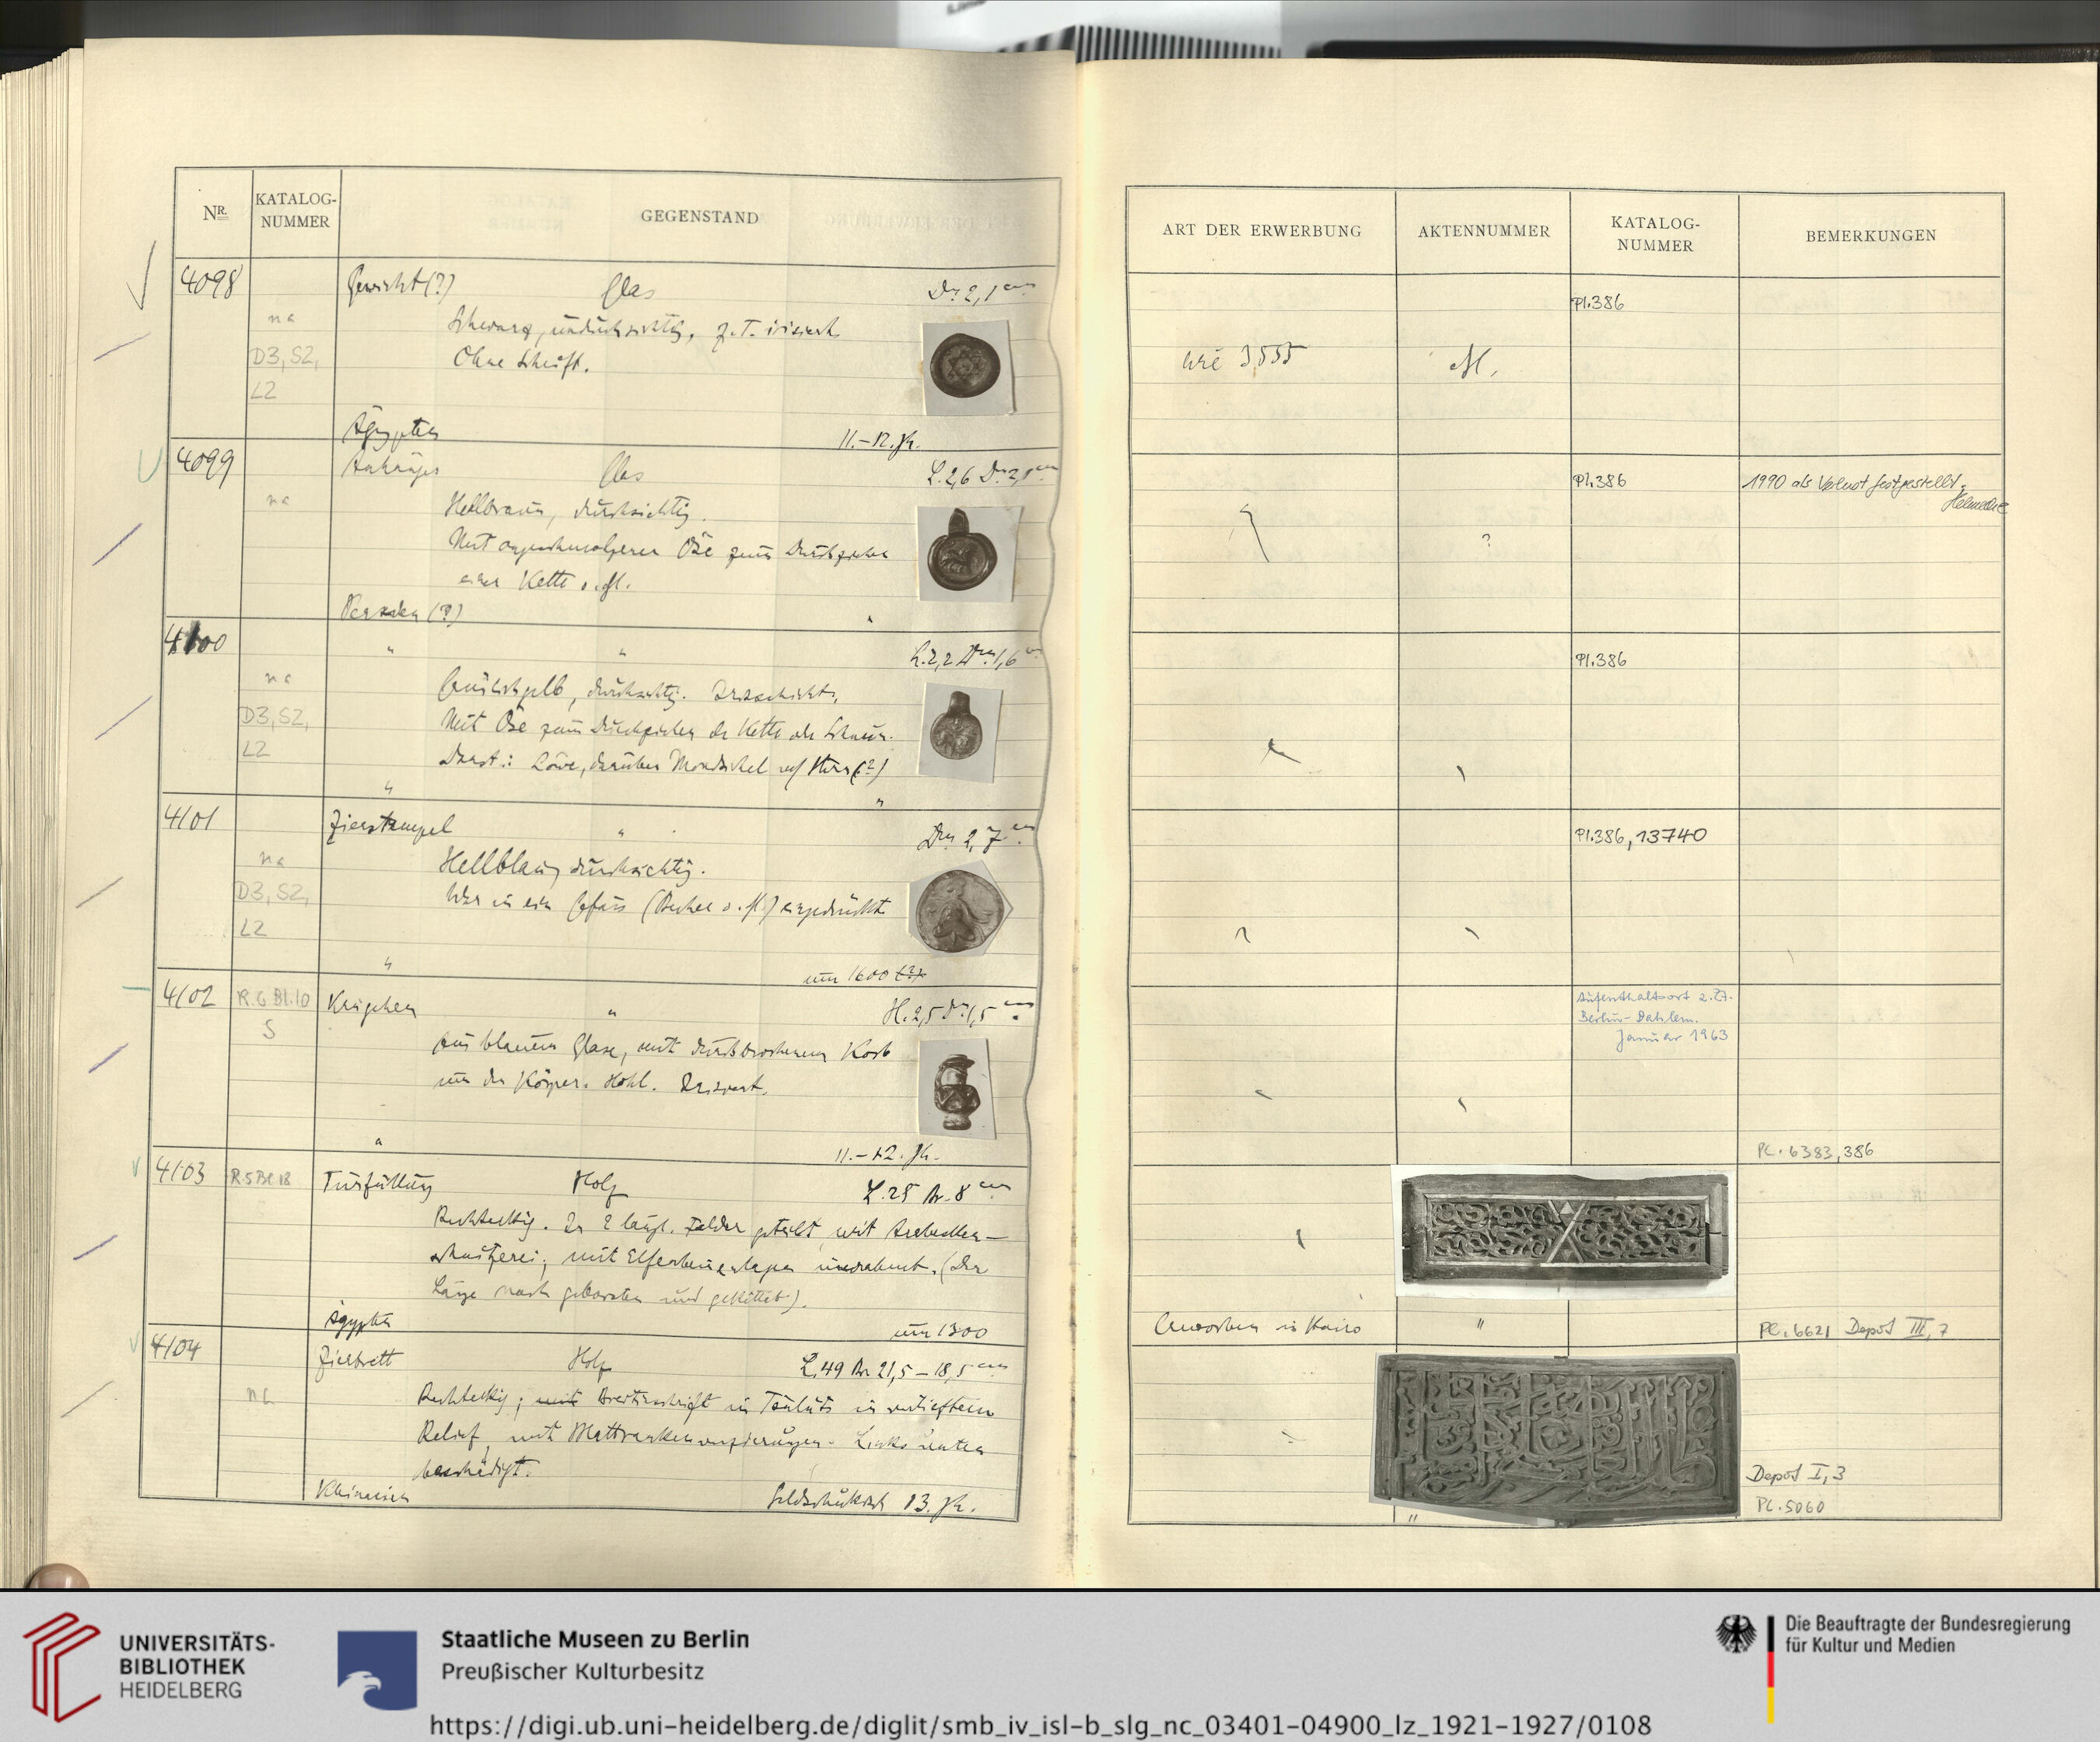 NR.
KATALOG-
NUMMER
GEGENSTAND
4098
Gewicht(?) Glas Dm 2,1 cm
na
Schwarz, undurchsichtig, z.T. irisiert
D3, S2,
Ohne Schrift.
L2
Ägypten 11.–12. Jh.
4099
Anhänger Glas L. 2,6 Dm 2,1 cm
na
Hellbraun, durchsichtig.
Mit angeschmolzener Öse zum Durchziehen
einer Kette o. Äl.
Persien (?) "
4100
" " L. 2,2 Dm 1,6 cm
na
durchsichtig.
D3, S2,
Mit Öse zum Durchziehen der Kette oder Schnur.
L2
Darst.: Löwe, darüber Mondsichel und Stern(?)
" "
4101
Zierstempel " Dm 2,7 cm
na
Hellblau, durchsichtig.
D3, S2,
War in ein Gefäss (Becher o. Äl.) eingedrückt
L2
" um 1600 (?)
4102 R.6 Bl.10 Krügchen " H. 2,5 Dm 1,5 cm
S
Aus blauem Glase, mit durchbrochenem Korb
um den Körper. Hohl. Irisiert.
" 11.–12. Jh.
4103 R.5 Bl. 18 Türfüllung Holz L. 25 Br. 8 cm
Rechteckig. In 2 längl. Felder geteilt, mit Arabesken-
schnitzerei, mit Elfenbeineinlagen umrahmt. (Der
Länge nach geborsten und gekittet).
Ägypten um 1300
4104
Zierbrett Holz L. 49 Br. 21,5–18,5 cm
na
Rechteckig; mit Inschrift in in vertieftem
Relief, mit Links unten
beschädigt.
Kleinasien Seldschukisch 13. Jh.
ART DER ERWERBUNG
AKTENNUMMER
KATALOG-
NUMMER
BEMERKUNGEN
Pl.386
wie 3555
Pl.386
1990 als Verlust festgestellt.
Helmecke
Pl.386
Pl.386, 13740
Aufenthaltsort z.Zt.
Berlin-Dahlem.
Januar 1963
Pl. 6383, 386
Erworben in Kairo "
Pl. 6621 Depot III, 7
Depot I, 3
Pl. 5060
"
UNIVERSITÄTS-
BIBLIOTHEK
HEIDELBERG
Staatliche Museen zu Berlin
Preußischer Kulturbesitz
https://digi.ub.uni-heidelberg.de/diglit/smb_iv_isl-b_slg_nc_03401-04900_lz_1921-1927/0108
Die Beauftragte der Bundesregierung
für Kultur und Medien